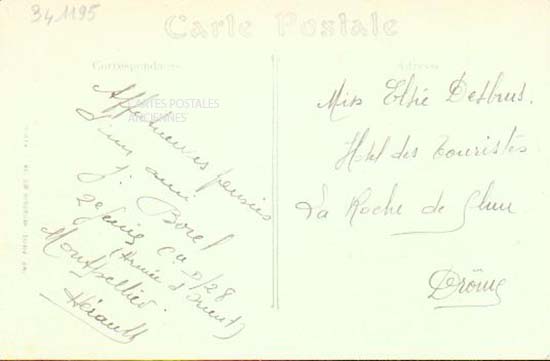 341195
Carte Postale
Correspondance
Adresse
CARTES POSTALES
ANCIENNES
Affectueuses pensées
d'un ami
J. Borel
2e Génie Cie D/28
(Armée d'Orient)
Montpellier
Hérault
Miss Elsie Desbrus.
Hôtel des Touristes
La Roche de Glun
Drôme